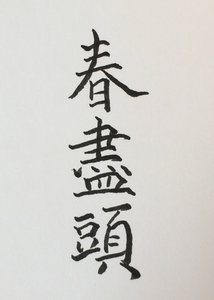 春盡頭